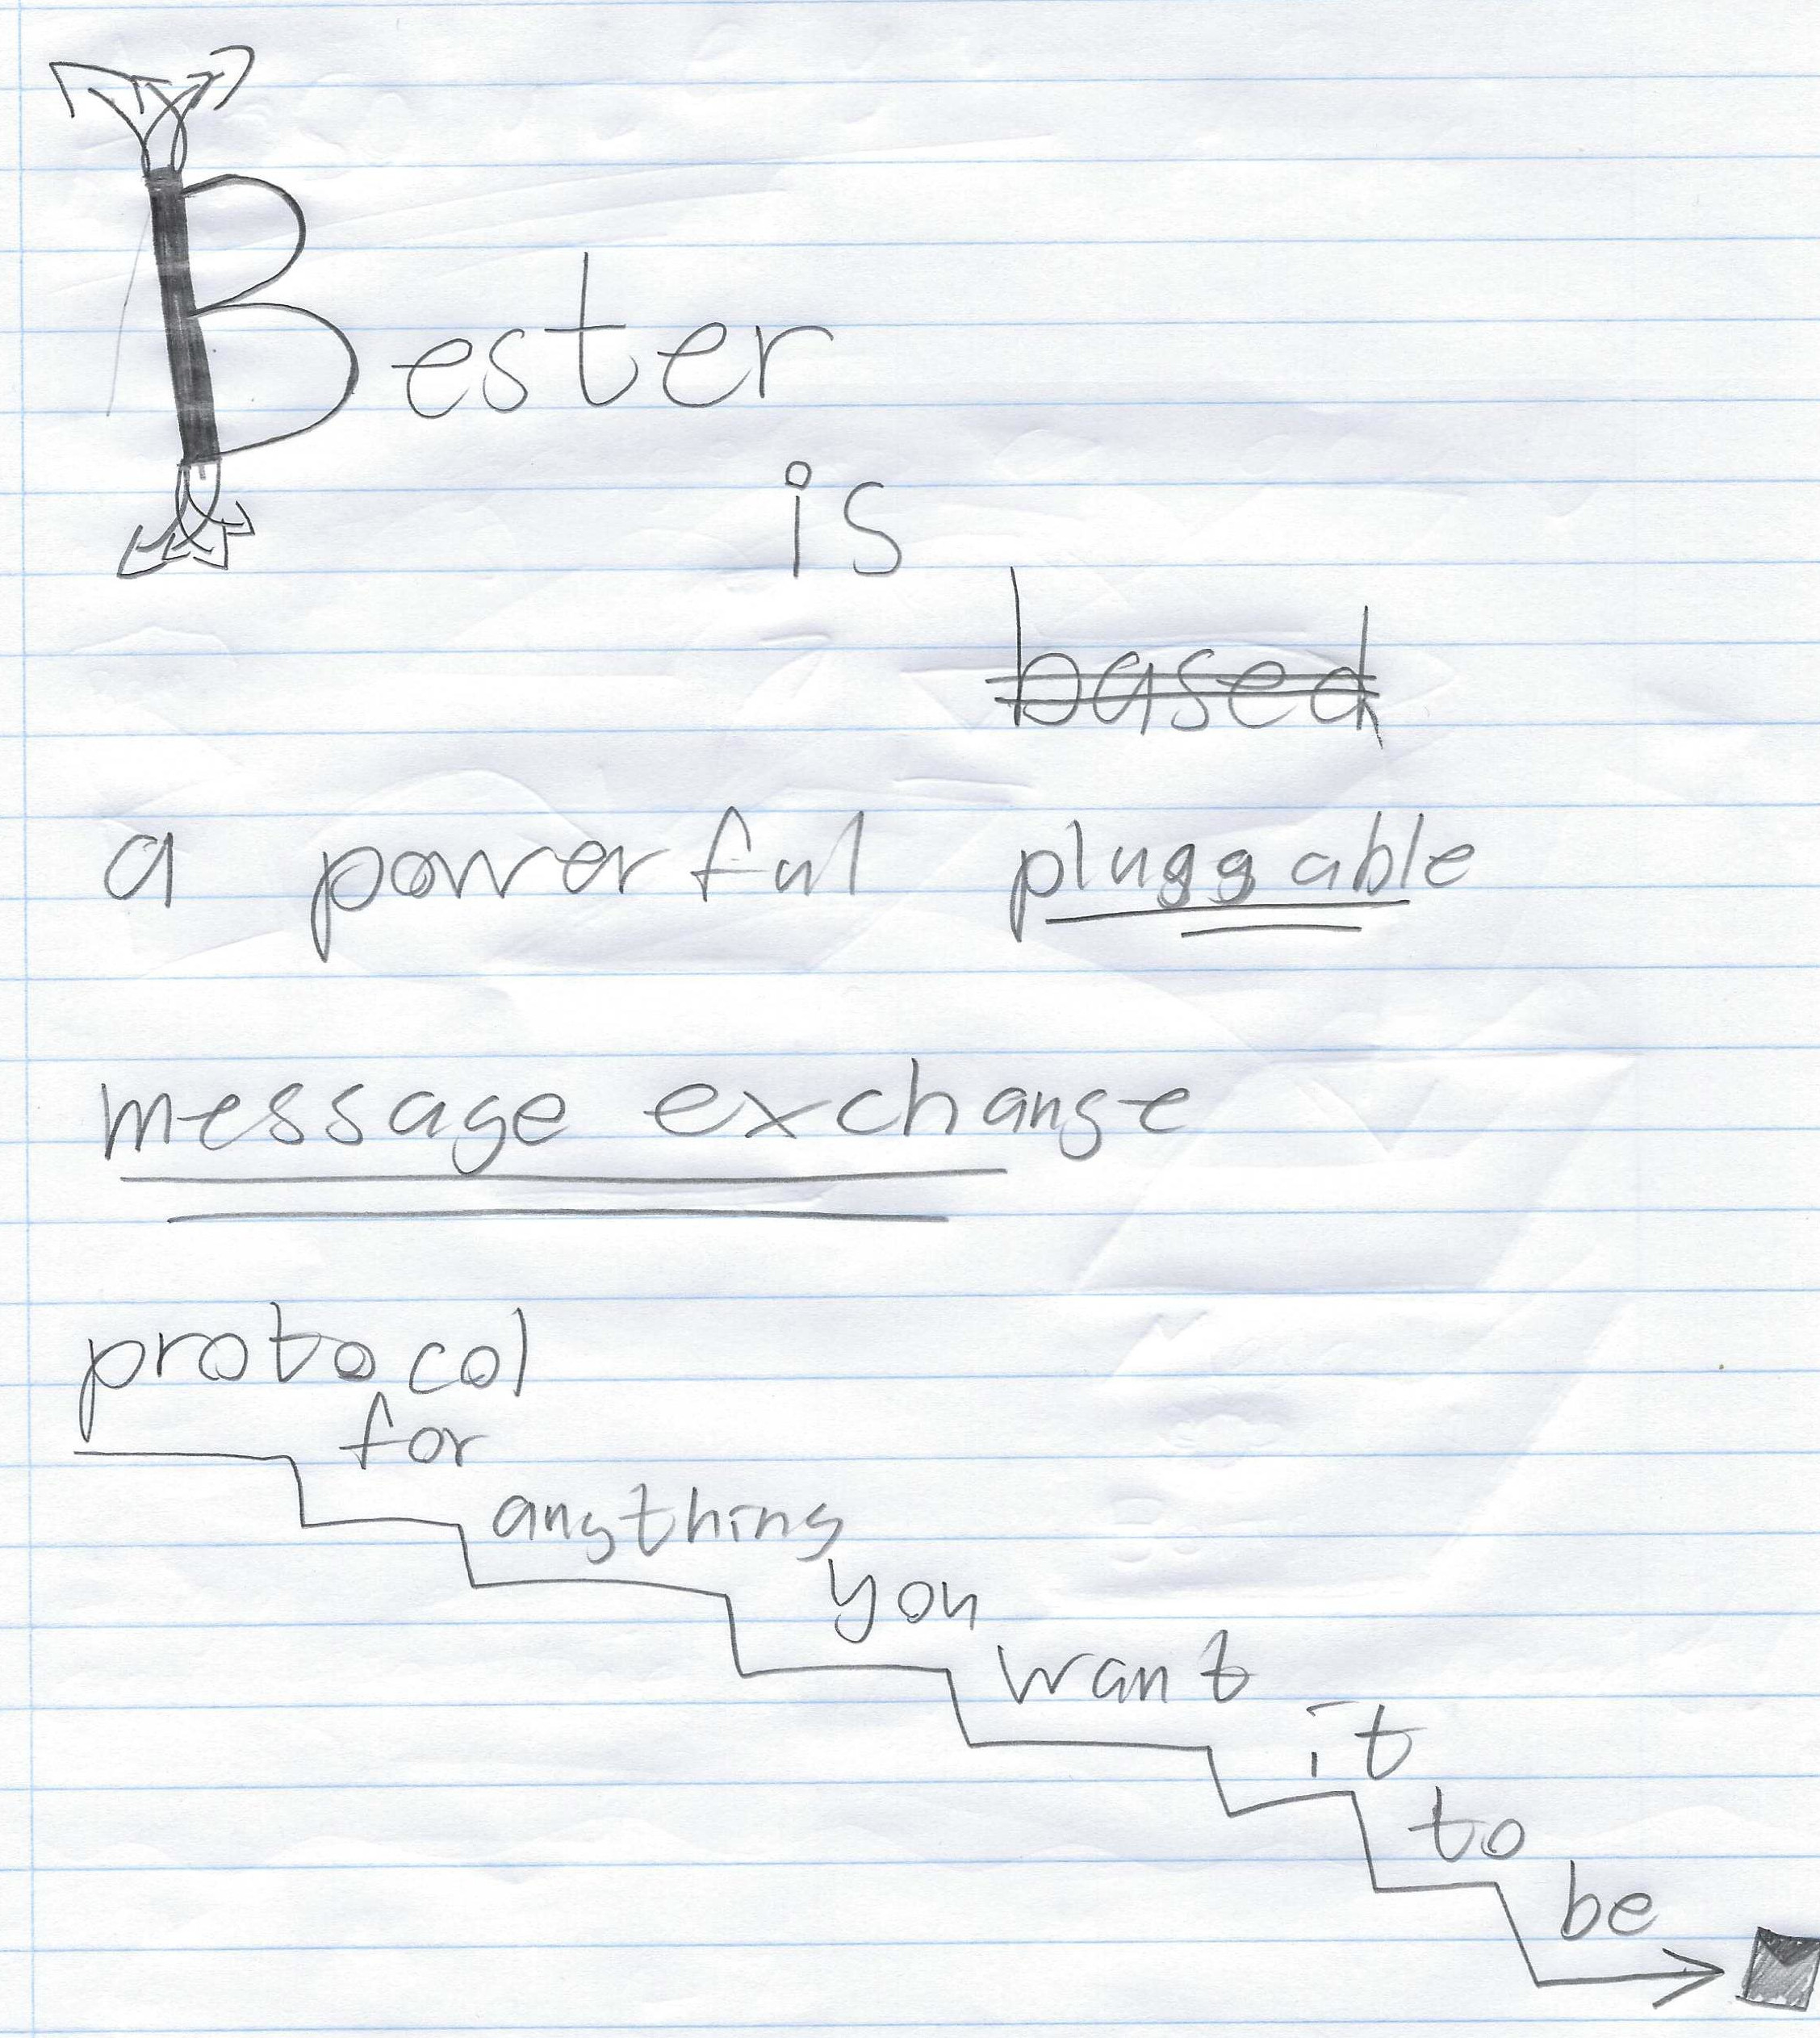 Bester
is
based
a powerful pluggable
message exchange
protocol
for
anything
you
want
it
to
be